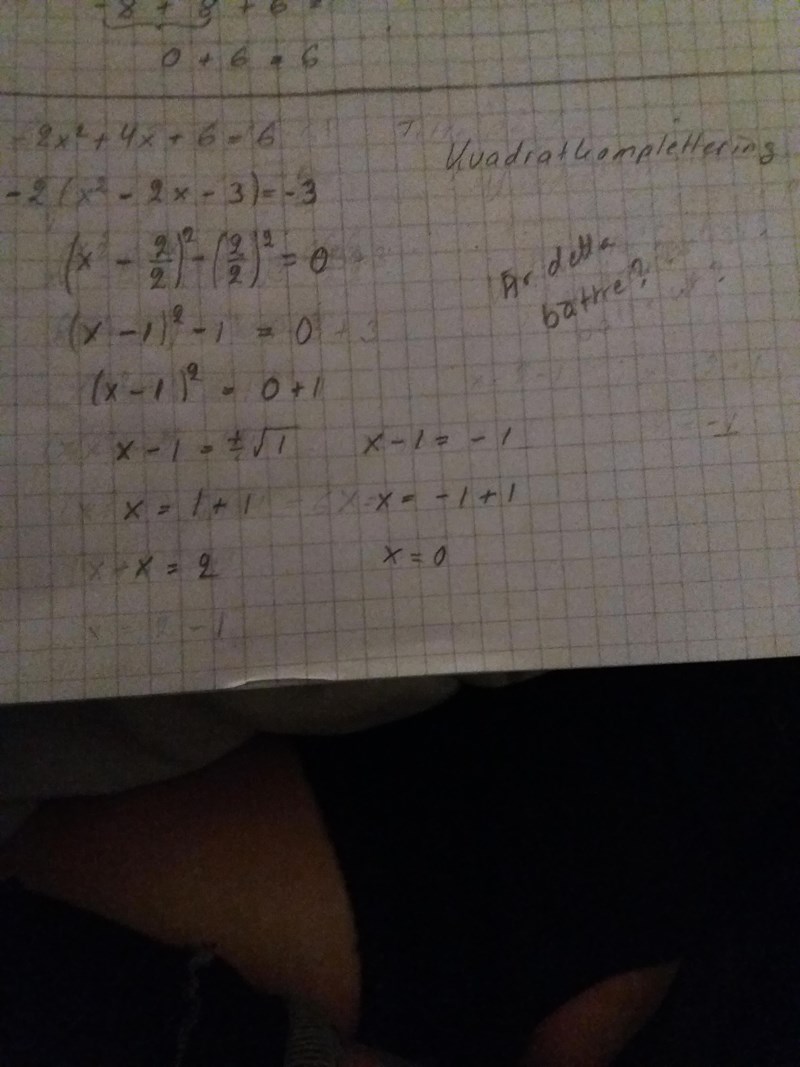 -8 + 8 + 6 =
0 + 6 = 6
-2x² + 4x + 6 = 6
Kvadratkomplettering
-2(x² - 2x - 3) = -3
(x - 2/2)² - (2/2)² = 0
Är detta
bättre?
(x - 1)² - 1 = 0
(x - 1)² = 0 + 1
x - 1 = ±√1 x - 1 = -1
x = 1 + 1 x = -1 + 1
x = 2 x = 0